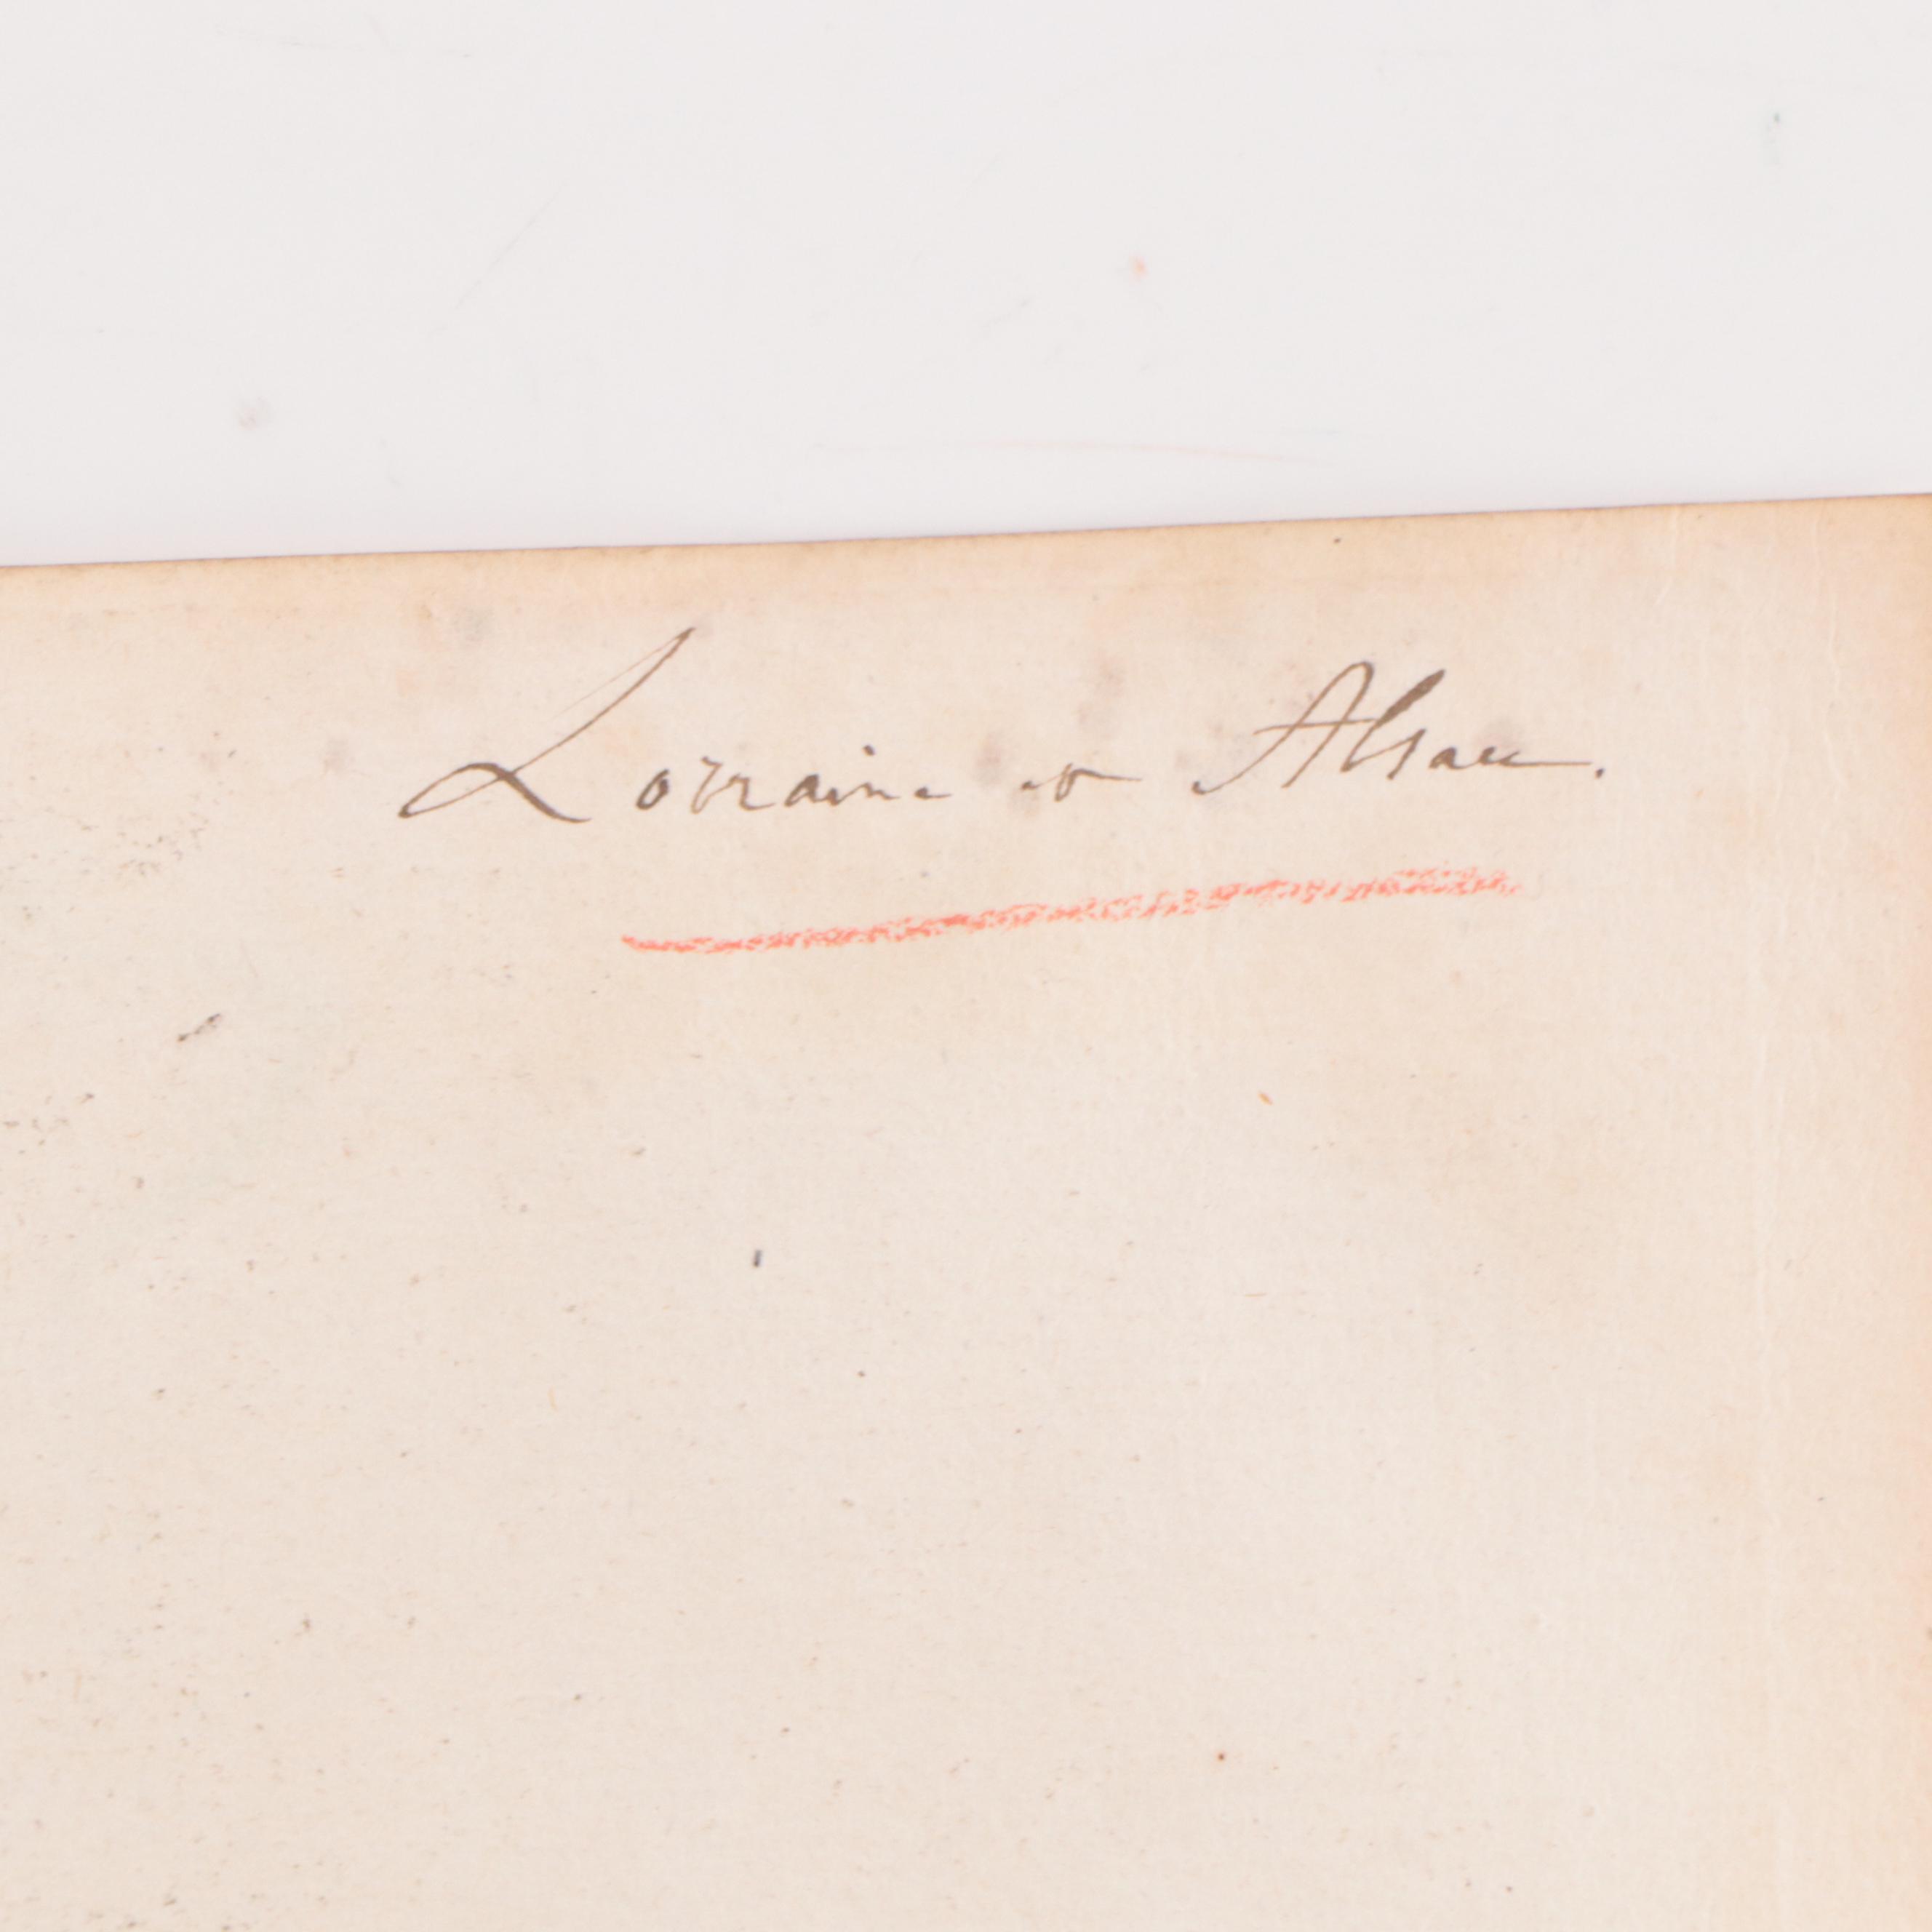 Lorraine et Alsace.